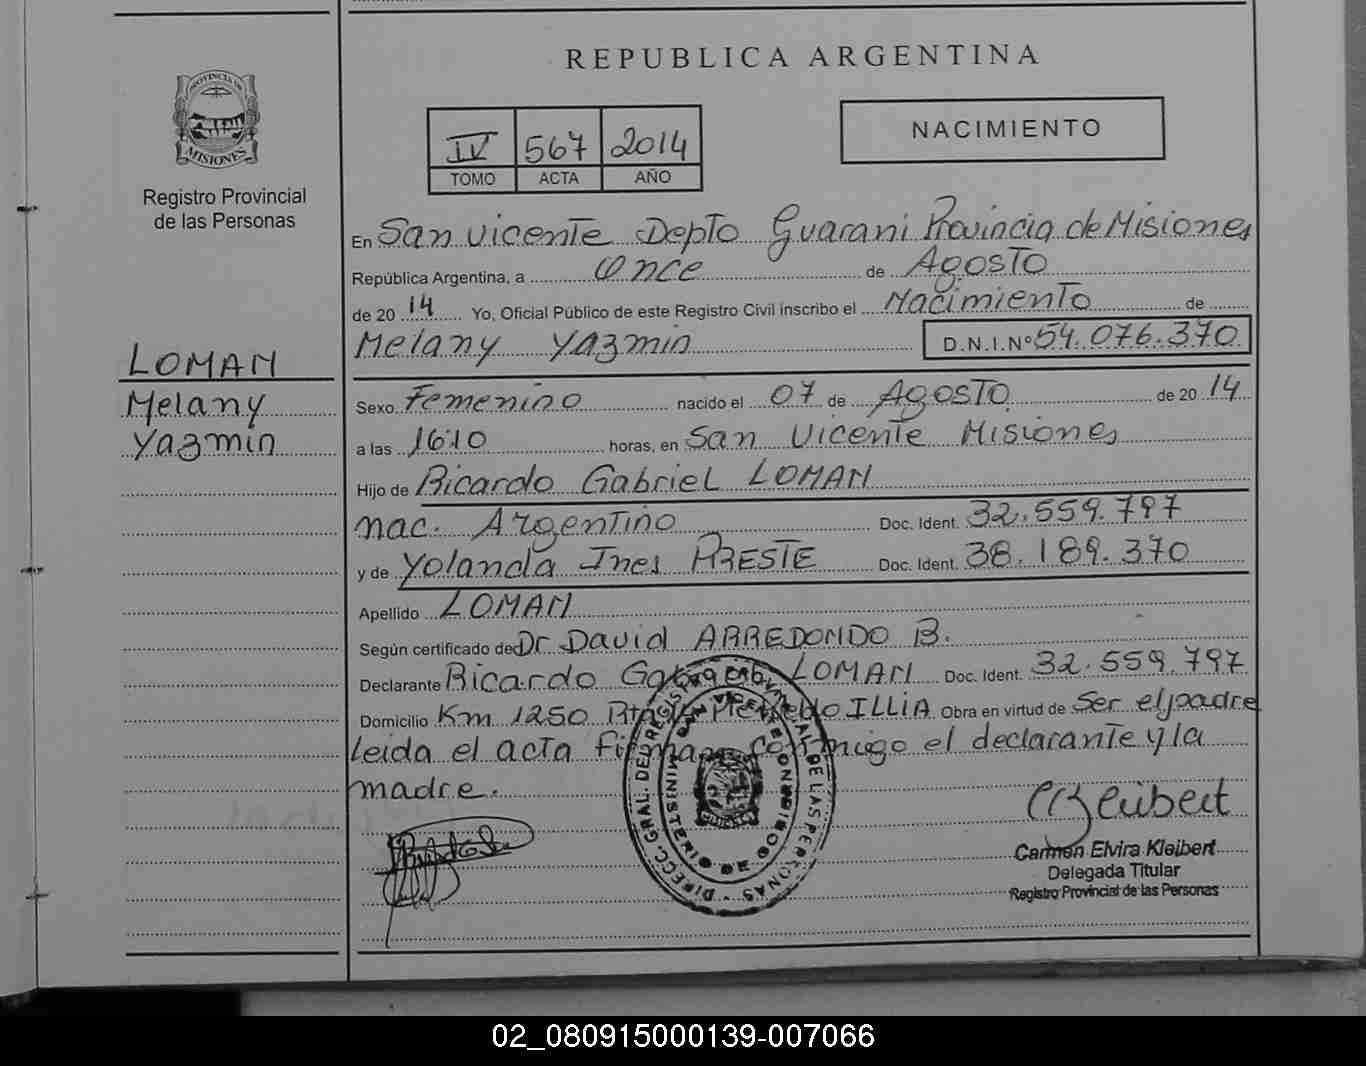 REPUBLICA ARGENTINA
PROVINCIA DE
MISIONES
Registro Provincial
de las Personas
IV 567 2014
TOMO ACTA AÑO
NACIMIENTO
En San Vicente Depto Guarani Provincia de Misiones
República Argentina, a Once de Agosto
de 20 14 Yo, Oficial Público de este Registro Civil inscribo el Nacimiento de
Melany Yazmin D.N.I.Nº 54.076.370
LOMAN
Melany
Yazmin
Sexo Femenino nacido el 07 de Agosto de 20 14
a las 16:10 horas, en San Vicente Misiones
Hijo de Ricardo Gabriel LOMAN
nac. Argentino Doc. Ident. 32.559.797
y de Yolanda Ines PRESTE Doc. Ident. 38.189.370
Apellido LOMAN
Según certificado de Dr David ARREDONDO B.
Declarante Ricardo Gabriel LOMAN Doc. Ident. 32.559.797
Domicilio Km 1250 ILLIA Obra en virtud de Ser el padre
leida el acta firman conmigo el declarante y la
madre.
DIRECC. GRAL. DEL REGISTRO PROVINCIAL DE LAS PERSONAS
SAN VICENTE
MINISTERIO DE GOBIERNO
CKleibert
Carmen Elvira Kleibert
Delegada Titular
Registro Provincial de las Personas
02_080915000139-007066